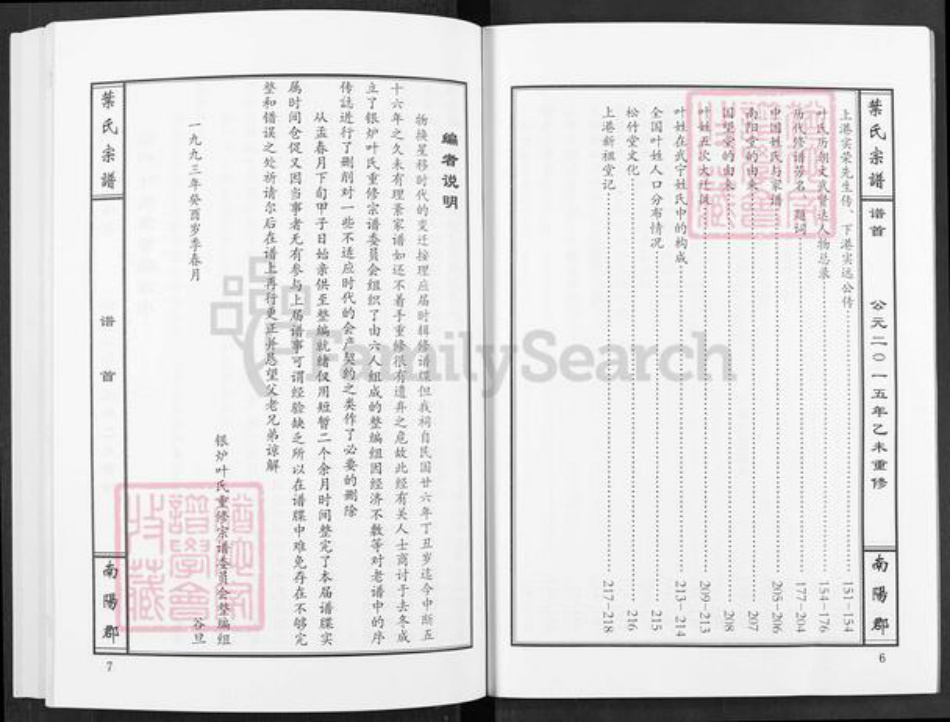 葉氏宗譜
谱首
公元二〇一五年乙未重修
南陽郡
6
上港实荣先生传、下港实远公传 151-154
叶氏历朝文武贤达人物总录 154-176
历代修谱芳名、题词 177-204
中国姓氏与家谱 205-206
南阳堂的由来 207
国望堂的由来 208
叶姓五次大迁徙 209-213
叶姓在武宁姓氏中的构成 213-214
全国叶姓人口分布情况 215
松竹堂文化 216
上港新祖堂记 217-218
编者说明
物换星移时代的变迁按理应届时辑修谱牒但我祠自民国廿六年丁丑岁迄今中断五
十六年之久未有理素家谱如还不着手重修很有遗弃之危故此经有关人士商讨于去冬成
立了银炉叶氏重修宗谱委员会组织了由六人组成的整编组因经济不数等对老谱中的序
传誌进行了删削对一些不适应时代的会产契约之类作了必要的删除
从孟春月下旬甲子日始亲供至整编就绪仅用短暂二个余月时间整完了本届谱牒实
属时间仓促又因当事者无有参与上届谱事可谓经验缺乏所以在谱牒中难免存在不够完
整和错误之处祈请尔后在谱上再行更正并恳望父老兄弟谅解
银炉叶氏重修宗谱委员会整编组
谷旦
一九九三年癸酉岁季春月
葉氏宗譜
谱首
南陽郡
7
FamilySearch